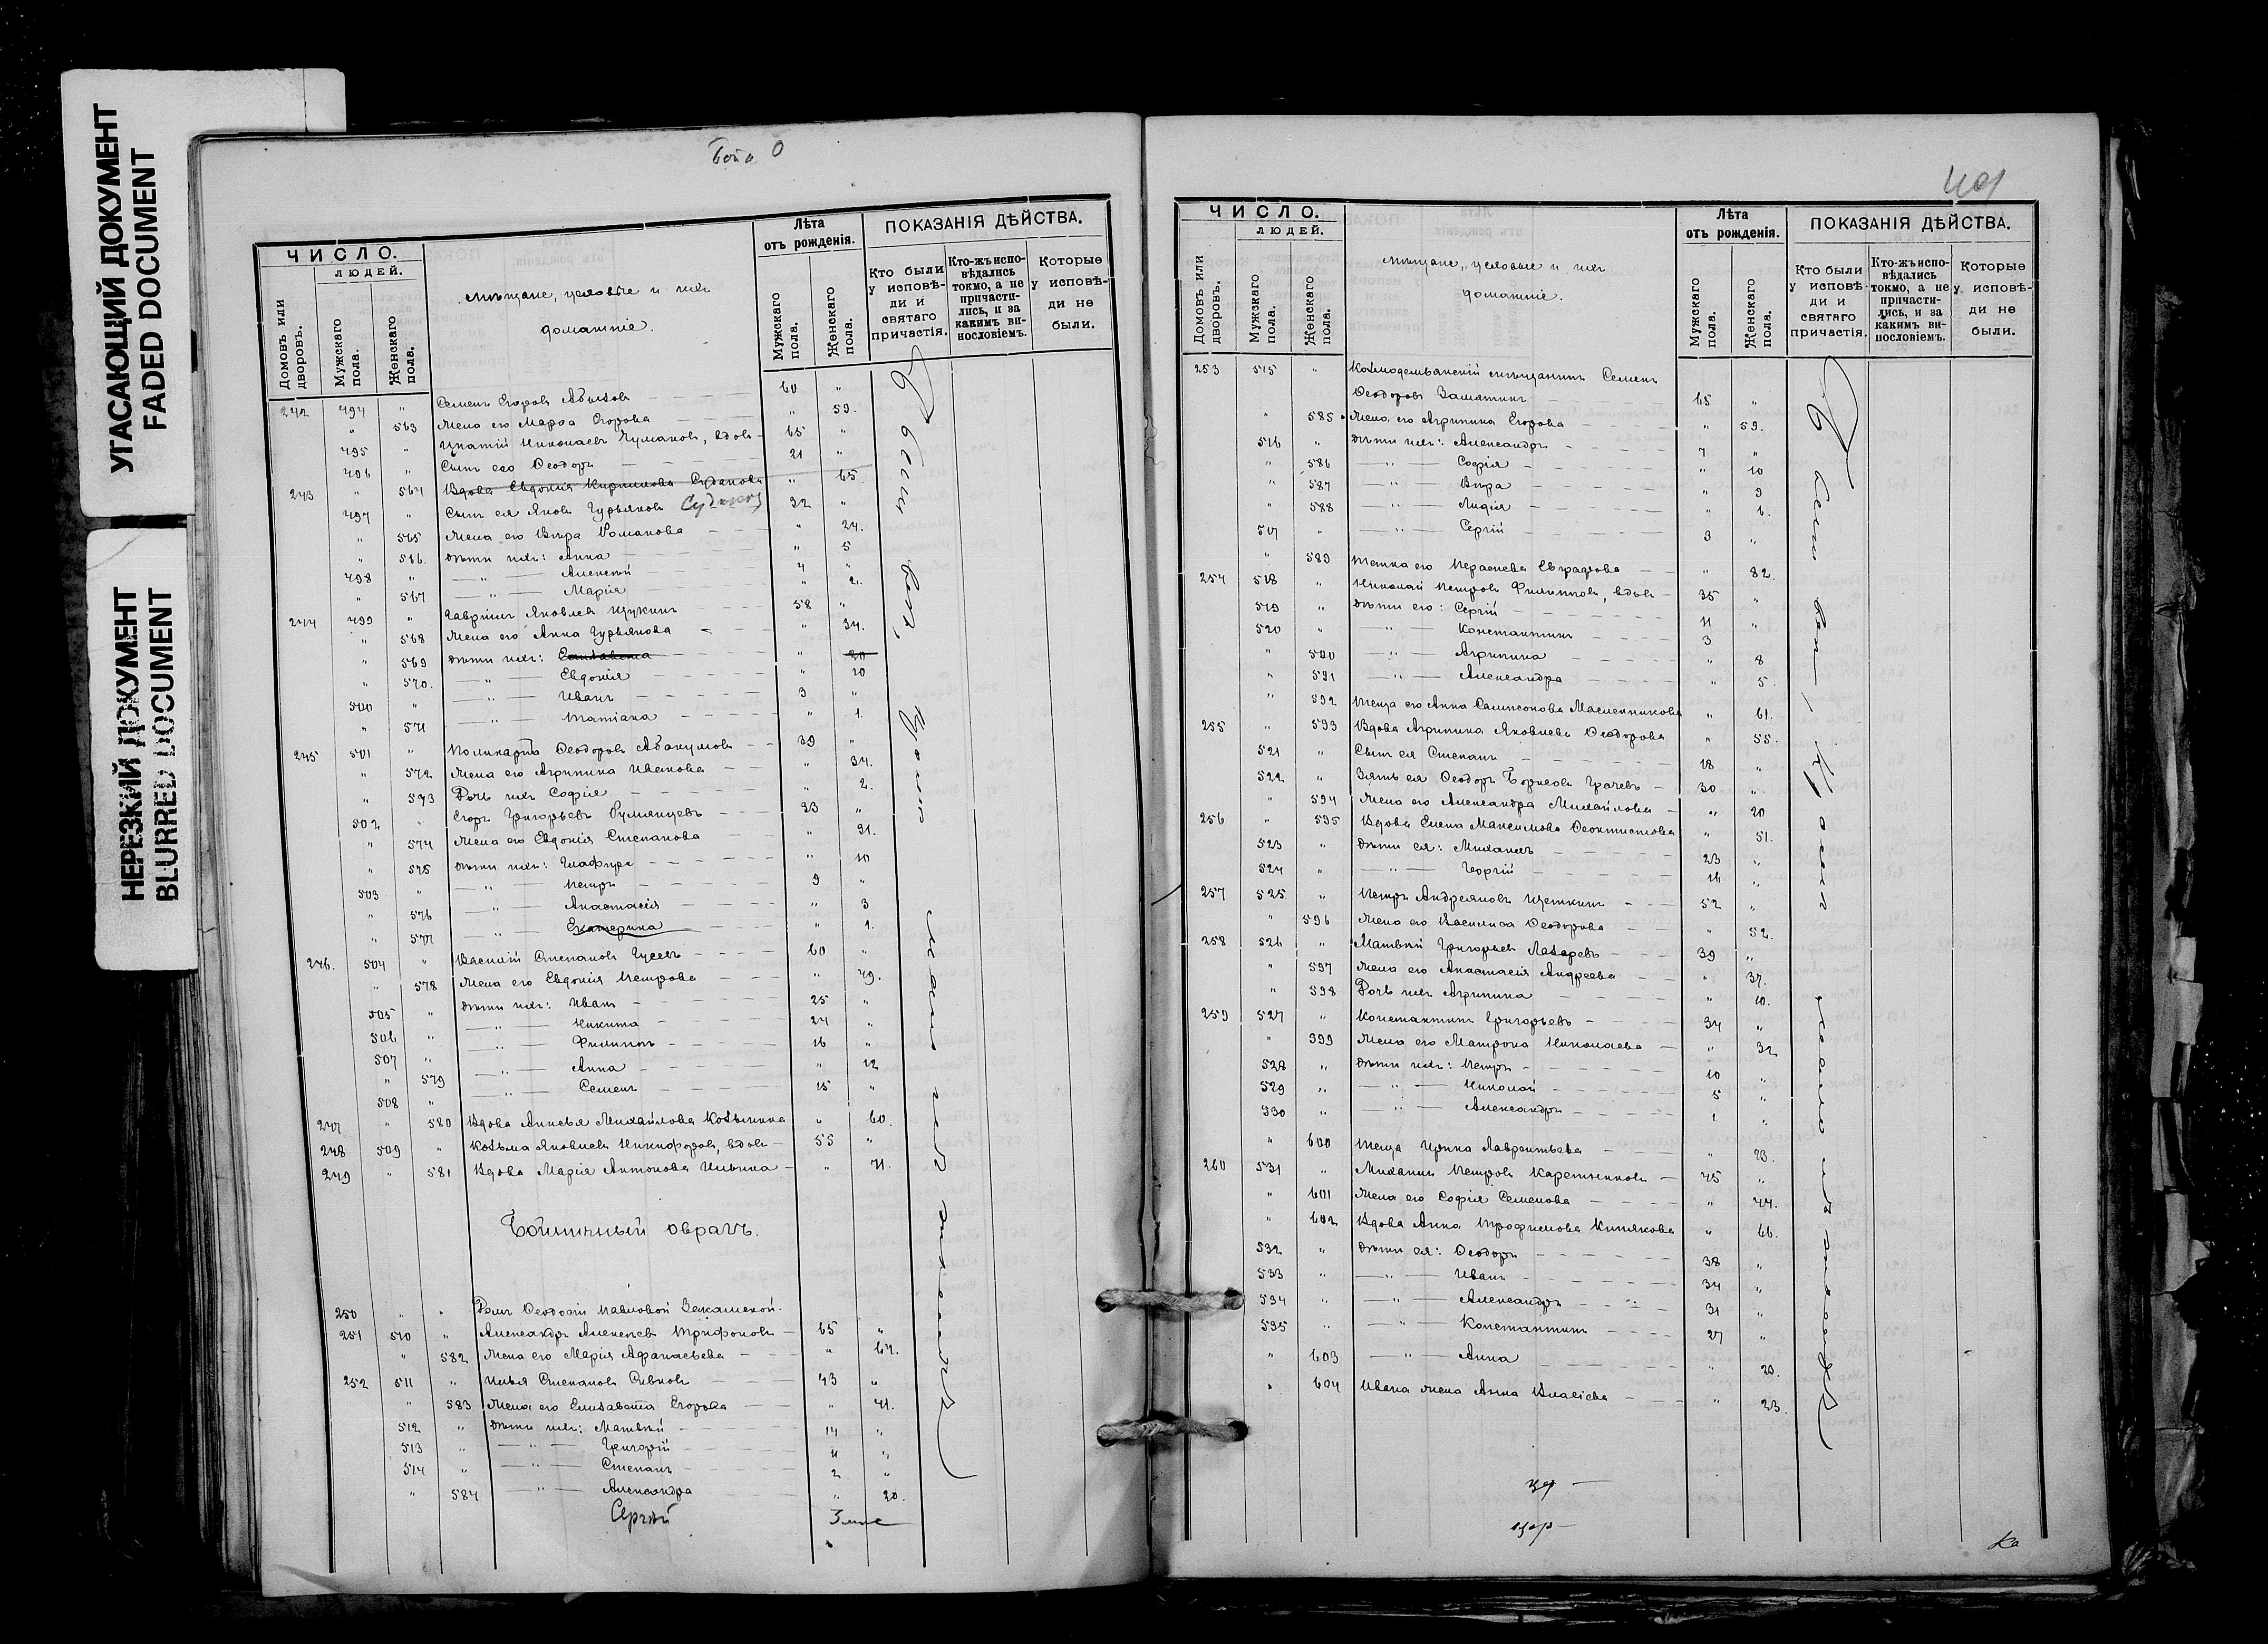 УГАСАЮЩИЙ ДОКУМЕНТ
FADED DOCUMENT
НЕРЕЗКИЙ ДОКУМЕНТ
BLURRED DOCUMENT
ЧИСЛО.
ЛЮДЕЙ.
Домовъ или дворовъ.
Мужскаго пола.
Женскаго пола.
Мѣщане, цеховые и ихъ
домашніе.
Лѣта
отъ рожденія.
Мужскаго пола.
Женскаго пола.
ПОКАЗАНІЯ ДѢЙСТВА.
Кто были у исповѣди и святаго причастія.
Кто-жъ исповѣдались токмо, а не причастились, и за какимъ винословіемъ.
Которые у исповѣди не были.
242 494 " Семенъ Егоровъ 60 "
" 563 Жена его Марѳа Егорова " 59.
495 " Ипатій Николаевъ Чумаковъ, вдовъ 65 "
496 " Сынъ его Ѳеодоръ 21 "
243 " 564 Вдова Евдокія Кириллова Судакова " 65.
497 " Сынъ ея Яковъ Гурьяновъ 32 "
" 565 Жена его Вѣра Романова " 24.
" 566. Дѣти ихъ: Анна " 5
498 " — " — Алексѣй 4 "
" 567 — " — Марія " 2.
244 499 " Гавріилъ Яковлевъ Щукинъ 58 "
" 568 Жена его Анна Гурьянова " 34.
" 569 Дѣти ихъ: Елизавета " 20
" 570. — " — Евдокія " 10
500 " — " — Иванъ 3 "
" 571 — " — Татіана " 1.
245 501 " Поликарпъ Ѳеодоровъ Абакумовъ 39 "
" 572 Жена его Агрипина Иванова " 34.
" 573 Дочь ихъ Софія " 2.
502 " Егоръ Григорьевъ Румянцевъ 33 "
" 574 Жена его Евдокія Степанова " 31.
" 575 Дѣти ихъ: Глафира " 10
503 " — " — Петръ 9 "
" 576 — " — Анастасія " 3
" 577 — " — Екатерина " 1.
246. 504 " Василій Степановъ Гусевъ 60 "
" 578 Жена его Евдокія Петрова " 49.
505 " Дѣти ихъ: Иванъ 25 "
506 " — " — Никита 24 "
507 " — " — Филиппъ 16 "
" 579 — " — Анна " 12
508 " — " — Семенъ 15 "
247 " 580 Вдова Анисья Михайлова Козьмина " 60.
248 509 " Козьма Яковлевъ Никифоровъ, вдовъ 55 "
249 " 581 Вдова Марія Антонова Ильина " 71.
оврагъ.
250 " " Домъ Ѳеодосіи Павловой
251 510 " Александръ Алексѣевъ Трифоновъ 65 "
" 582 Жена его Марія Афанасьева " 64.
252 511 " Илья Степановъ 43 "
" 583 Жена его Елизавета Егорова " 41.
512 " Дѣти ихъ: Матвѣй 14 "
513 " — " — Григорій 11 "
514 " — " — Степанъ 2 "
" 584 — " — Александра " 20.
Сергѣй
ЧИСЛО.
ЛЮДЕЙ.
Домовъ или дворовъ.
Мужскаго пола.
Женскаго пола.
Мѣщане, цеховые и ихъ
домашніе.
Лѣта
отъ рожденія.
Мужскаго пола.
Женскаго пола.
ПОКАЗАНІЯ ДѢЙСТВА.
Кто были у исповѣди и святаго причастія.
Кто-жъ исповѣдались токмо, а не причастились, и за какимъ винословіемъ.
Которые у исповѣди не были.
253 515 " Козмодемьянскій мѣщанинъ Семенъ
Ѳеодоровъ Замяткинъ 65 "
" 585 Жена его Агрипина Егорова " 59.
516 " Дѣти ихъ: Александръ 7 "
" 586 — " — Софія " 10
" 587 — " — Вѣра " 9
" 588 — " — Лидія " 6.
517 " — " — Сергій 3 "
" 589 Тетка его Евграфова " 82.
254 518 " Николай Петровъ Филиповъ, вдовъ 35 "
519 " Дѣти его: Сергій 11 "
520 " — " — Константинъ 3 "
" 590 — " — Агрипина " 8
" 591 — " — Александра " 5.
" 592 Теща его Анна Самсонова Масленникова " 61.
255 " 593 Вдова Агрипина Яковлева Ѳеодорова " 55.
521 " Сынъ ея Степанъ 18 "
522 " Зять ея Ѳеодоръ Борисовъ Грачевъ 30 "
" 594 Жена его Александра Михайлова " 20
256 " 595 Вдова Елена Максимова Ѳеоктистова " 51.
523 " Дѣти ея: Михаилъ 23 "
524 " — " — Георгій 16 "
257 525 " Петръ Андреяновъ Щеткинъ 52 "
" 596 Жена его Василиса Ѳеодорова " 52.
258 526 " Матвѣй Григорьевъ Лазаревъ 39 "
" 597 Жена его Анастасія Андреева " 37.
" 598 Дочь ихъ Агрипина " 10.
259 527 " Константинъ Григорьевъ 34 "
" 599 Жена его Матрона Николаева " 32
528 " Дѣти ихъ: Петръ 10 "
529 " — " — Николай 5 "
530 " — " — Александръ 1 "
" 600 Теща Ирина Лаврентьева " 73.
260 531 " Михаилъ Петровъ Каретниковъ 45 "
" 601 Жена его Софія Семенова " 44.
" 602 Вдова Анна Трофимова " 66.
532 " Дѣти ея: Ѳеодоръ 38 "
533 " — " — Иванъ 34 "
534 " — " — Александръ 31 "
535 " — " — Константинъ 27 "
" 603 — " — Анна " 20.
" 604 Ивана жена Анна Власіева " 23.